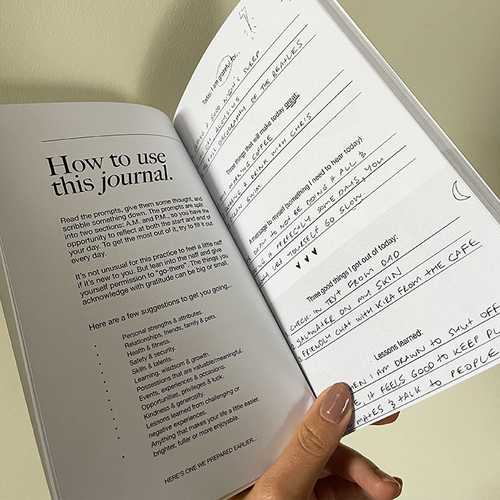 How to use
this journal.
Read the prompts, give them some thought, and
scribble something down. The prompts are split
into two sections: A.M. and P.M., so you have the
opportunity to reflect at both the start and end of
your day. To get the most out of it, try to fill it out
every day.
It's not unusual for this practice to feel a little naff
if it's new to you. But lean into the naff and give
yourself permission to "go there". The things you
acknowledge with gratitude can be big or small.
Here are a few suggestions to get you going...
Personal strengths & attributes.
Relationships, friends, family & pets.
Health & fitness.
Safety & security.
Skills & talents.
Learning, wisdsom & growth.
Possessions that are valuable/meaningful.
Events, experiences & occasions.
Opportunities, privileges & luck.
Kindness & generosity.
Lessons learned from challenging or
negative experiences.
Anything that makes your life a little easier,
brighter, fuller or more enjoyable.
HERE'S ONE WE PREPARED EARLIER...
Today, I am grateful for:
A GOOD NIGHT'S SLEEP
DISCOGRAPHY OF THE BEATLES
Three things that will make today great:
MORNING COFFEE
A DRINK WITH CHRIS
SWIM
A message to myself (something I need to hear today):
TO NOT BE DOING IT ALL &
PERFECTLY SOME DAYS. YOU
YOURSELF GO SLOW
Three good things I got out of today:
CHECK-IN TEXT FROM DAD
SALTWATER ON MY SKIN
FRIENDLY CHAT WITH KIRA FROM THE CAFE
Lessons learned:
WHEN I AM DRAWN TO SHUT OFF
IT FEELS GOOD TO KEEP
& TALK TO PEOPLE